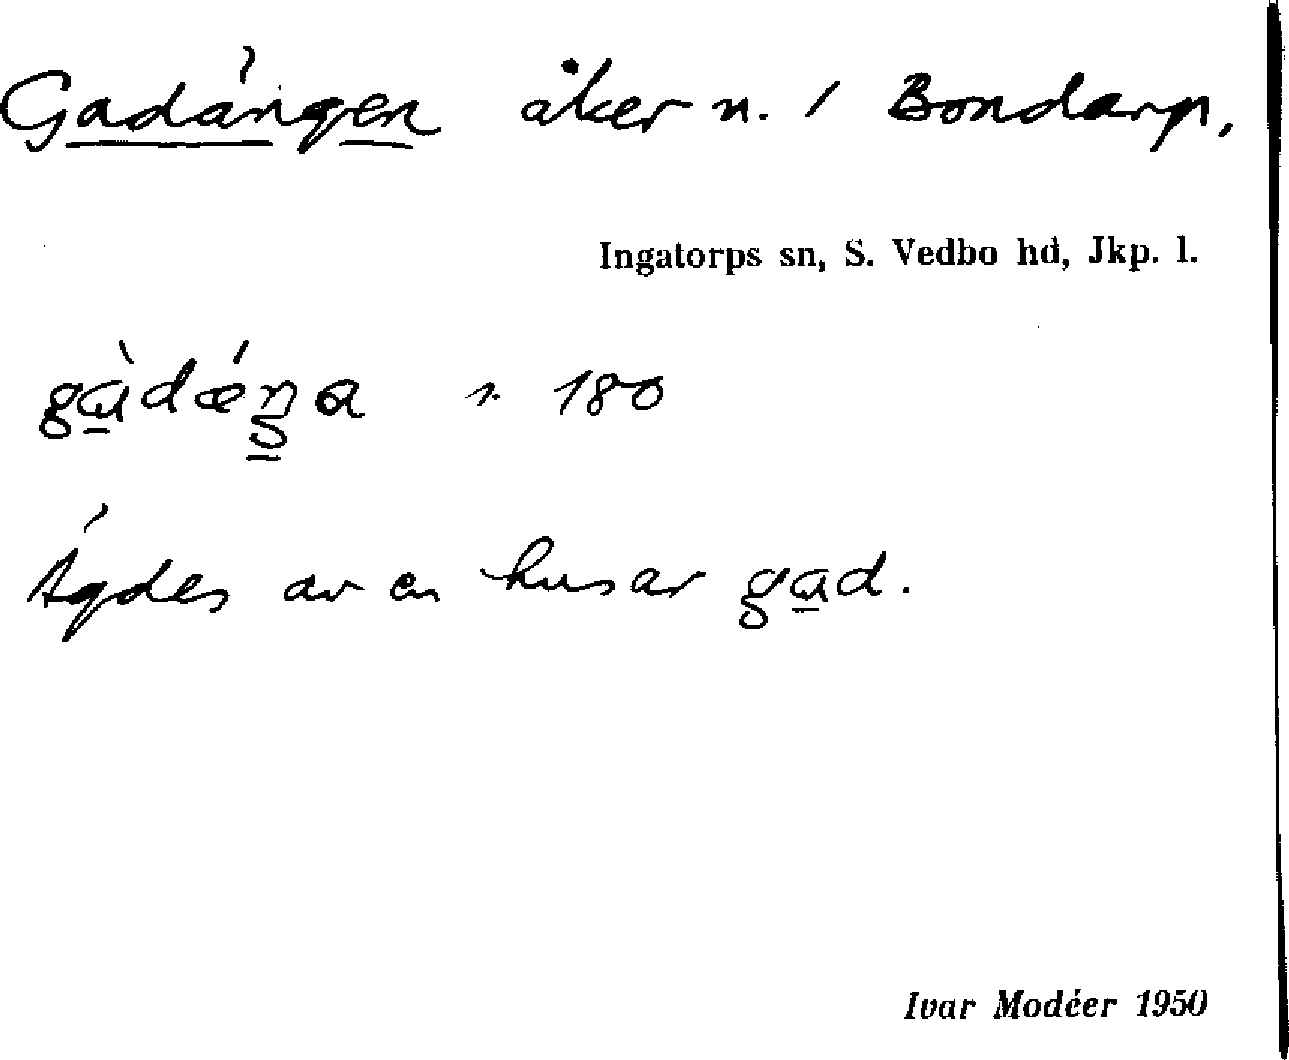 Gadängen åker n. / Bondarp,
Ingatorps sn, S. Vedbo hd, Jkp. l.
gàdǽŋa n. 180
Ägdes av en husar gad.
Ivar Modéer 1950